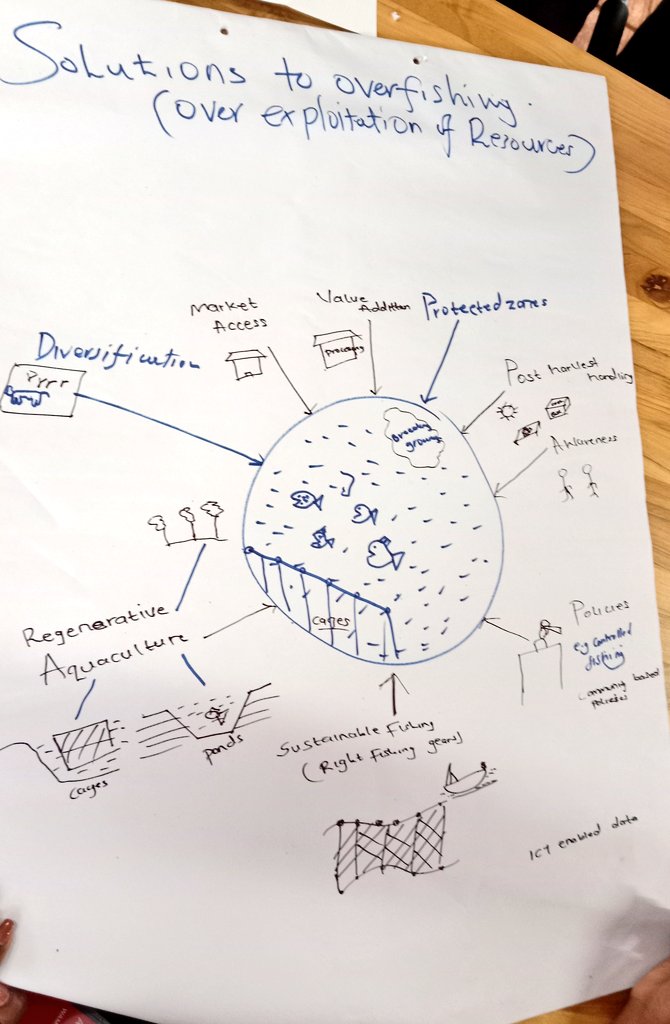 Solutions to overfishing.
(over exploitation of Resources)
Market
Access
Value
Addition
Protected zones
Processing
Diversification
Prrr
Post harvest
handling
Breeding
grounds
Awareness
cages
Regenerative
Aquaculture
Policies
eg controlled
fishing
community based
policies
cages
ponds
Sustainable Fishing
(Right fishing gears)
ICT enabled data